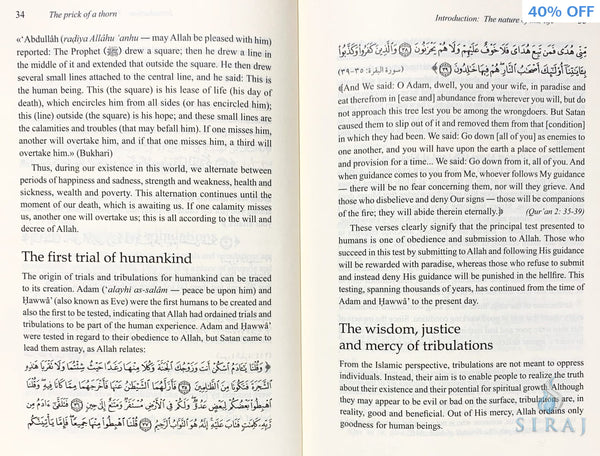 34
The prick of a thorn
«'Abdullâh (raḍiya Allâhu 'anhu — may Allah be pleased with him)
reported: The Prophet (ﷺ) drew a square; then he drew a line in
the middle of it and extended that outside the square. He then drew
several small lines attached to the central line, and he said: This is
the human being. This (the square) is his lease of life (his day of
death), which encircles him from all sides (or has encircled him);
this (line) outside (the square) is his hope; and these small lines are
the calamities and troubles (that may befall him). If one misses him,
another will overtake him, and if that one misses him, a third will
overtake him.» (Bukhari)
Thus, during our existence in this world, we alternate between
periods of happiness and sadness, strength and weakness, health and
sickness, wealth and poverty. This alternation continues until the
moment of our death, which is awaiting us. If one calamity misses
us, another one will overtake us; this is all according to the will and
decree of Allah.
The first trial of humankind
The origin of trials and tribulations for humankind can be traced
to its creation. Adam ('alayhi as-salâm — peace be upon him) and
Ḥawwâ' (also known as Eve) were the first humans to be created and
also the first to be tested, indicating that Allah had ordained trials and
tribulations to be part of the human experience. Adam and Ḥawwâ'
were tested in regard to their obedience to Allah, but Satan came to
lead them astray, as Allah relates:
﴿ وَقُلْنَا يَٰٓـَٔادَمُ ٱسْكُنْ أَنتَ وَزَوْجُكَ ٱلْجَنَّةَ وَكُلَا مِنْهَا رَغَدًا حَيْثُ شِئْتُمَا وَلَا تَقْرَبَا هَٰذِهِ
ٱلشَّجَرَةَ فَتَكُونَا مِنَ ٱلظَّٰلِمِينَ ﴿٣٥﴾ فَأَزَلَّهُمَا ٱلشَّيْطَٰنُ عَنْهَا فَأَخْرَجَهُمَا مِمَّا كَانَا فِيهِ ۖ وَقُلْنَا
ٱهْبِطُوا۟ بَعْضُكُمْ لِبَعْضٍ عَدُوٌّ ۖ وَلَكُمْ فِى ٱلْأَرْضِ مُسْتَقَرٌّ وَمَتَٰعٌ إِلَىٰ حِينٍ ﴿٣٦﴾ فَتَلَقَّىٰٓ ءَادَمُ مِن
رَّبِّهِۦ كَلِمَٰتٍ فَتَابَ عَلَيْهِ ۚ إِنَّهُۥ هُوَ ٱلتَّوَّابُ ٱلرَّحِيمُ ﴿٣٧﴾ قُلْنَا ٱهْبِطُوا۟ مِنْهَا جَمِيعًا ۖ فَإِمَّا يَأْتِيَنَّكُم
40% OFF
Introduction: The nature of
مِّنِّى هُدًى فَمَن تَبِعَ هُدَاىَ فَلَا خَوْفٌ عَلَيْهِمْ وَلَا هُمْ يَحْزَنُونَ ﴿٣٨﴾ وَٱلَّذِينَ كَفَرُوا۟ وَكَذَّبُوا۟
بِـَٔايَٰتِنَآ أُو۟لَٰٓئِكَ أَصْحَٰبُ ٱلنَّارِ ۖ هُمْ فِيهَا خَٰلِدُونَ ﴿٣٩﴾ ﴾ (سورة البقرة: ٣٥-٣٩)
﴾And We said: O Adam, dwell, you and your wife, in paradise and
eat therefrom in [ease and] abundance from wherever you will, but do
not approach this tree lest you be among the wrongdoers. But Satan
caused them to slip out of it and removed them from that [condition]
in which they had been. We said: Go down [all of you] as enemies to
one another, and you will have upon the earth a place of settlement
and provision for a time... We said: Go down from it, all of you. And
when guidance comes to you from Me, whoever follows My guidance
— there will be no fear concerning them, nor will they grieve. And
those who disbelieve and deny Our signs — those will be companions
of the fire; they will abide therein eternally.﴿ (Qur'an 2: 35-39)
These verses clearly signify that the principal test presented to
humans is one of obedience and submission to Allah. Those who
succeed in this test by submitting to Allah and following His guidance
will be rewarded with paradise, whereas those who refuse to submit
and instead deny His guidance will be punished in the hellfire. This
testing, spanning thousands of years, has continued from the time of
Adam and Ḥawwâ' to the present day.
The wisdom, justice
and mercy of tribulations
From the Islamic perspective, tribulations are not meant to oppress
individuals. Instead, their aim is to enable people to realize the truth
about their existence and their potential for spiritual growth. Although
they may appear to be evil or bad on the surface, tribulations are, in
reality, good and beneficial. Out of His mercy, Allah ordains only
goodness for human beings.
SIRAJ